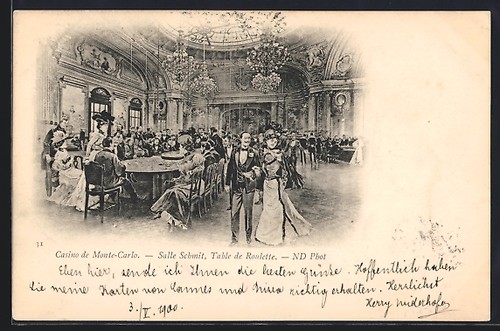 51
Casino de Monte-Carlo. — Salle Schmit, Table de Roulette. — ND Phot
Eben hier, sende ich Ihnen die besten Grüsse. Hoffentlich haben
Sie meine Karten von Cannes und Nizza richtig erhalten. Herzlichst
3./V. 1900.